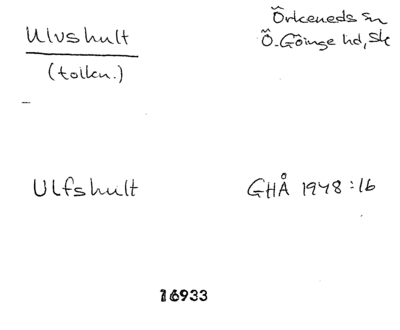 Ulvshult
(tolkn.)
Örkeneds sn
Ö. Göinge hd, Sk
Ulfshult
GHÅ 1948:16
16933